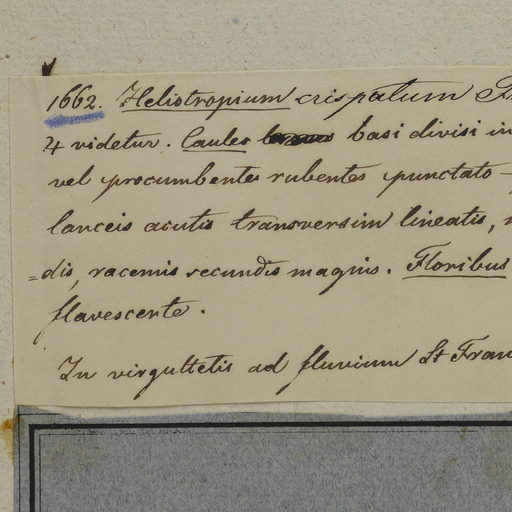 1662. Heliotropium crispatum Fr
♃ videtur. Caules basi divisi in
vel procumbentes rubentes punctato-
lanceis acutis transversim lineatis,
=dis, racemis secundis magnis. Floribus
flavescente.
In virgultetis ad fluvium St Fran